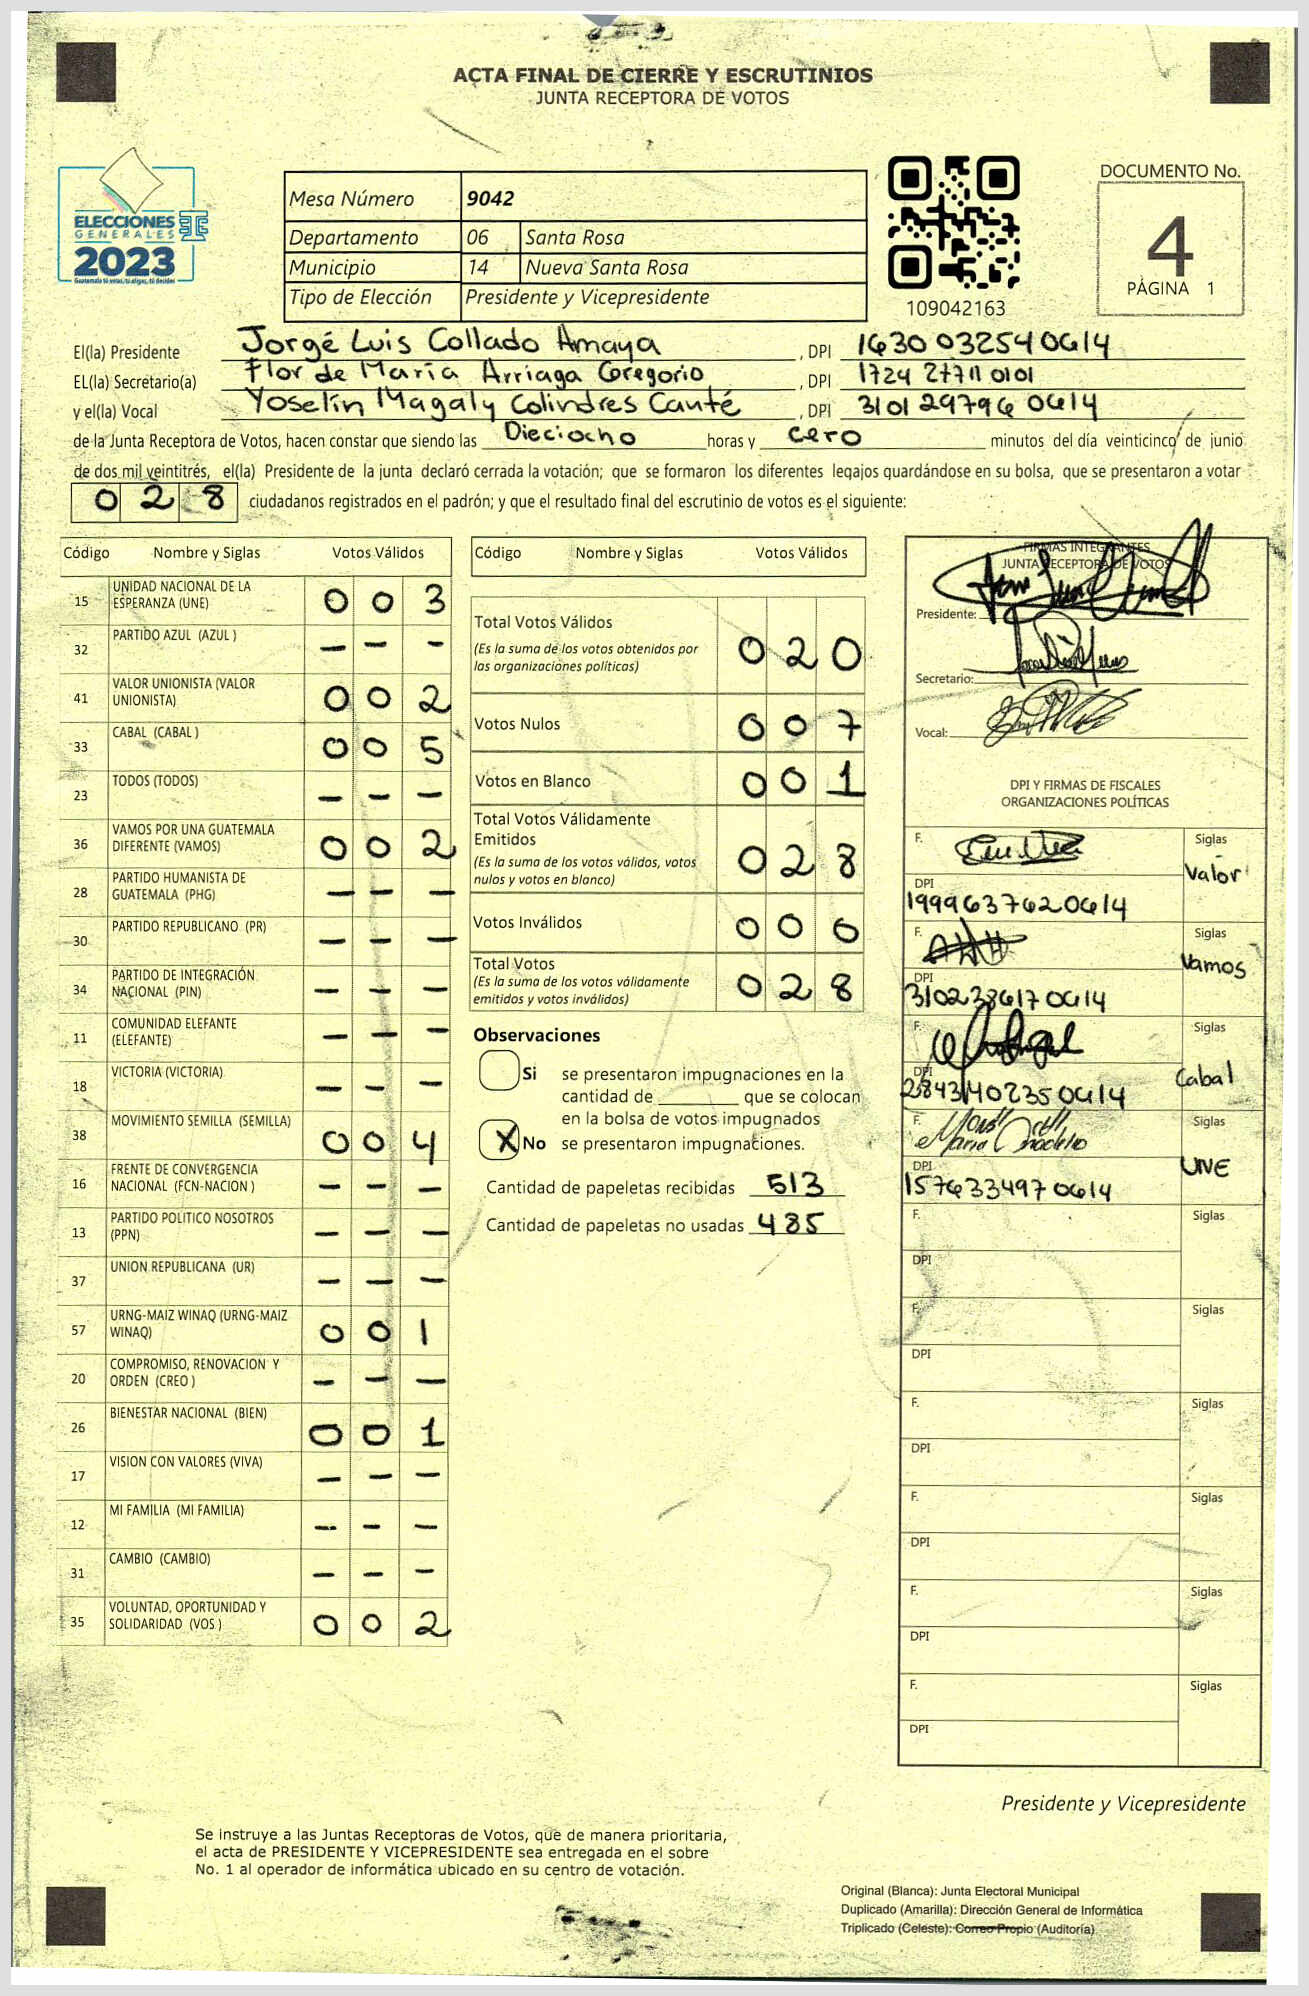 ACTA FINAL DE CIERRE Y ESCRUTINIOS
JUNTA RECEPTORA DE VOTOS
ELECCIONES
GENERALES
2023
Guatemala tú votas, tú eliges, tú decides
Mesa Número 9042
Departamento 06 Santa Rosa
Municipio 14 Nueva Santa Rosa
Tipo de Elección Presidente y Vicepresidente
109042163
DOCUMENTO No.
4
PÁGINA 1
El(la) Presidente Jorgé Luis Collado Amaya , DPI 1630 03254 0614
EL(la) Secretario(a) Flor de María Arriaga Gregorio , DPI 1724 27711 0101
y el(la) Vocal Yoselin Magaly Colindres Canté , DPI 3101 29796 0614
de la Junta Receptora de Votos, hacen constar que siendo las Dieciocho horas y cero minutos del día veinticinco de junio
de dos mil veintitrés, el(la) Presidente de la junta declaró cerrada la votación; que se formaron los diferentes legajos guardándose en su bolsa, que se presentaron a votar
0 2 8 ciudadanos registrados en el padrón; y que el resultado final del escrutinio de votos es el siguiente:
Código Nombre y Siglas Votos Válidos
15 UNIDAD NACIONAL DE LA
ESPERANZA (UNE) 0 0 3
32 PARTIDO AZUL (AZUL ) - - -
41 VALOR UNIONISTA (VALOR
UNIONISTA) 0 0 2
33 CABAL (CABAL ) 0 0 5
23 TODOS (TODOS) - - -
36 VAMOS POR UNA GUATEMALA
DIFERENTE (VAMOS) 0 0 2
28 PARTIDO HUMANISTA DE
GUATEMALA (PHG) - - -
30 PARTIDO REPUBLICANO (PR) - - -
34 PARTIDO DE INTEGRACIÓN
NACIONAL (PIN) - - -
11 COMUNIDAD ELEFANTE
(ELEFANTE) - - -
18 VICTORIA (VICTORIA) - - -
38 MOVIMIENTO SEMILLA (SEMILLA) 0 0 4
16 FRENTE DE CONVERGENCIA
NACIONAL (FCN-NACION ) - - -
13 PARTIDO POLITICO NOSOTROS
(PPN) - - -
37 UNION REPUBLICANA (UR) - - -
57 URNG-MAIZ WINAQ (URNG-MAIZ
WINAQ) 0 0 1
20 COMPROMISO, RENOVACION Y
ORDEN (CREO ) - - -
26 BIENESTAR NACIONAL (BIEN) 0 0 1
17 VISION CON VALORES (VIVA) - - -
12 MI FAMILIA (MI FAMILIA) - - -
31 CAMBIO (CAMBIO) - - -
35 VOLUNTAD, OPORTUNIDAD Y
SOLIDARIDAD (VOS ) 0 0 2
Código Nombre y Siglas Votos Válidos
Total Votos Válidos
(Es la suma de los votos obtenidos por
las organizaciones políticas) 0 2 0
Votos Nulos 0 0 7
Votos en Blanco 0 0 1
Total Votos Válidamente
Emitidos
(Es la suma de los votos válidos, votos
nulos y votos en blanco) 0 2 8
Votos Inválidos 0 0 0
Total Votos
(Es la suma de los votos válidamente
emitidos y votos inválidos) 0 2 8
Observaciones
Si se presentaron impugnaciones en la
cantidad de ________ que se colocan
en la bolsa de votos impugnados
X No se presentaron impugnaciones.
Cantidad de papeletas recibidas 513
Cantidad de papeletas no usadas 485
FIRMAS INTEGRANTES
JUNTA RECEPTORA DE VOTOS
Presidente:
Secretario:
Vocal:
DPI Y FIRMAS DE FISCALES
ORGANIZACIONES POLÍTICAS
F. Siglas
Valor
DPI
1999637620614
F. Siglas
Vamos
DPI
3102386170614
F. Siglas
Cabal
DPI
2843140235 0614
F. Siglas
UNE
DPI
1576334970614
F. Siglas
DPI
F. Siglas
DPI
F. Siglas
DPI
F. Siglas
DPI
F. Siglas
DPI
F. Siglas
DPI
Presidente y Vicepresidente
Se instruye a las Juntas Receptoras de Votos, que de manera prioritaria,
el acta de PRESIDENTE Y VICEPRESIDENTE sea entregada en el sobre
No. 1 al operador de informática ubicado en su centro de votación.
Original (Blanca): Junta Electoral Municipal
Duplicado (Amarilla): Dirección General de Informática
Triplicado (Celeste): Correo Propio (Auditoría)